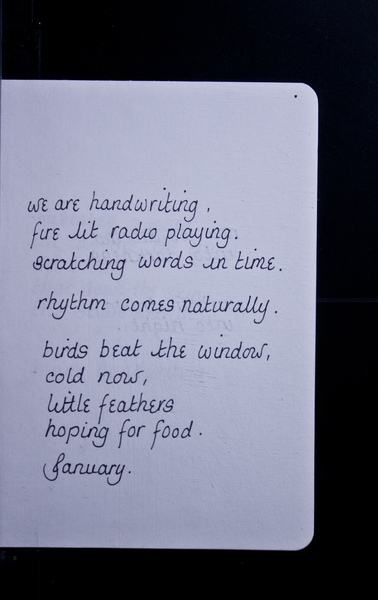 we are handwriting,
fire lit radio playing.
scratching words in time.
rhythm comes naturally.
birds beat the window,
cold now,
little feathers
hoping for food.
January.